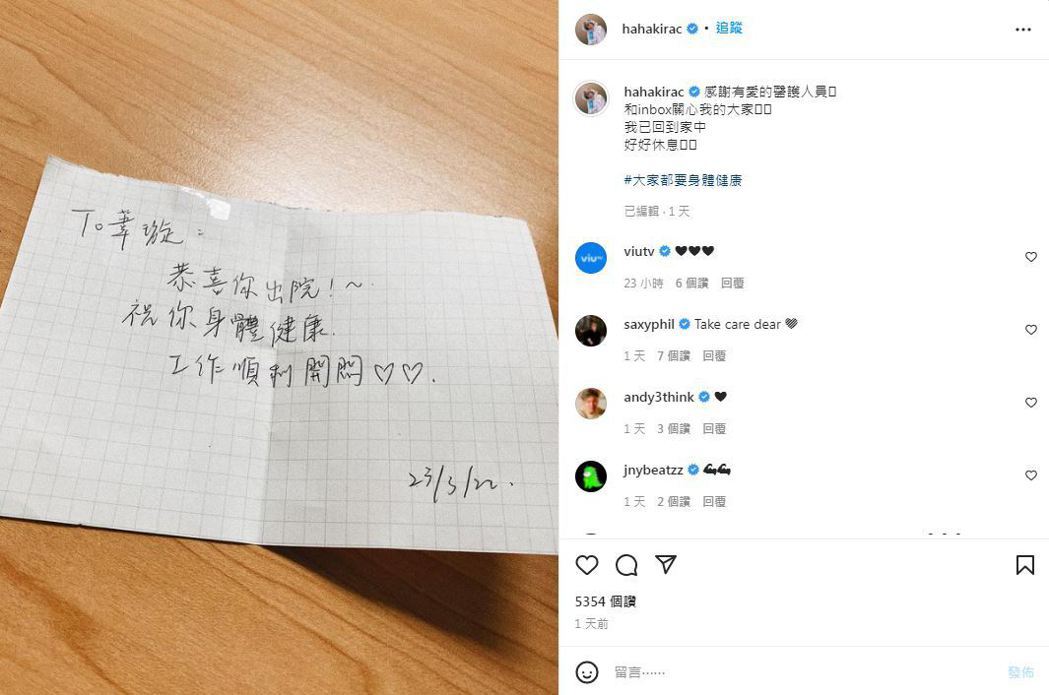 To 葦璇：
恭喜你出院！～
祝你身體健康.
工作順利開心♡♡.
23/3/22.
hahakirac • 追蹤
hahakirac 感謝有愛的醫護人員
和inbox關心我的大家
我已回到家中
好好休息
#大家都要身體健康
已編輯 · 1 天
viu
viutv 🖤🖤🖤
23 小時 6 個讚 回覆
saxyphil Take care dear 🖤
1 天 7 個讚 回覆
andy3think 🖤
1 天 3 個讚 回覆
jnybeatzz 💪💪
1 天 2 個讚 回覆
5354 個讚
1 天前
留言……
發佈